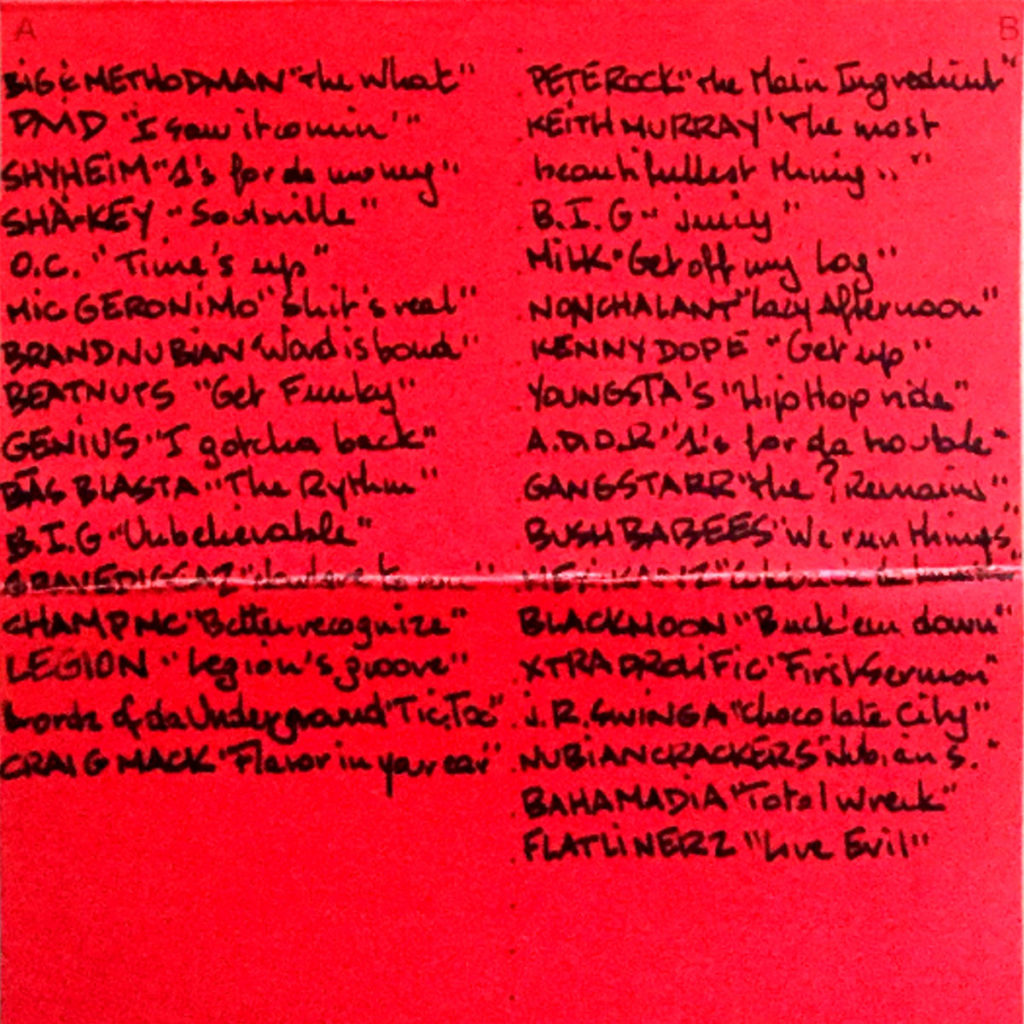 A
BIG & METHODMAN "The What"
PMD "I saw it comin'"
SHYHEIM "1's for da money"
SHÄ-KEY "Soulsville"
O.C. "Time's up"
MIC GERONIMO "Shit's real"
BRAND NUBIAN "Word is bond"
BEATNUTS "Get Funky"
GENIUS "I gotcha back"
BAS BLASTA "The Rythm"
B.I.G "Unbelievable"
GRAVEDIGGAZ
CHAMP MC "Better recognize"
LEGION "Legion's groove"
Lordz of da Underground "Tic, Toc"
CRAIG MACK "Flavor in your ear"
B
PETE ROCK "The Main Ingredient"
KEITH MURRAY "The most
beautifullest thing..."
B.I.G "Juicy"
MILK "Get off my log"
NONCHALANT "Lazy Afternoon"
KENNY DOPE "Get up"
YOUNGSTA'S "Hip Hop ride"
A.D.O.R "1's for da trouble"
GANGSTARR "The ? Remains"
BUSH BABEES "We run things"
BLACKMOON "Buck'em down"
XTRA PROLIFIC "First Sermon"
J.R. SWINGA "Chocolate City"
NUBIAN CRACKERS "Nubian S."
BAHAMADIA "Total Wreck"
FLATLINERZ "Live Evil"